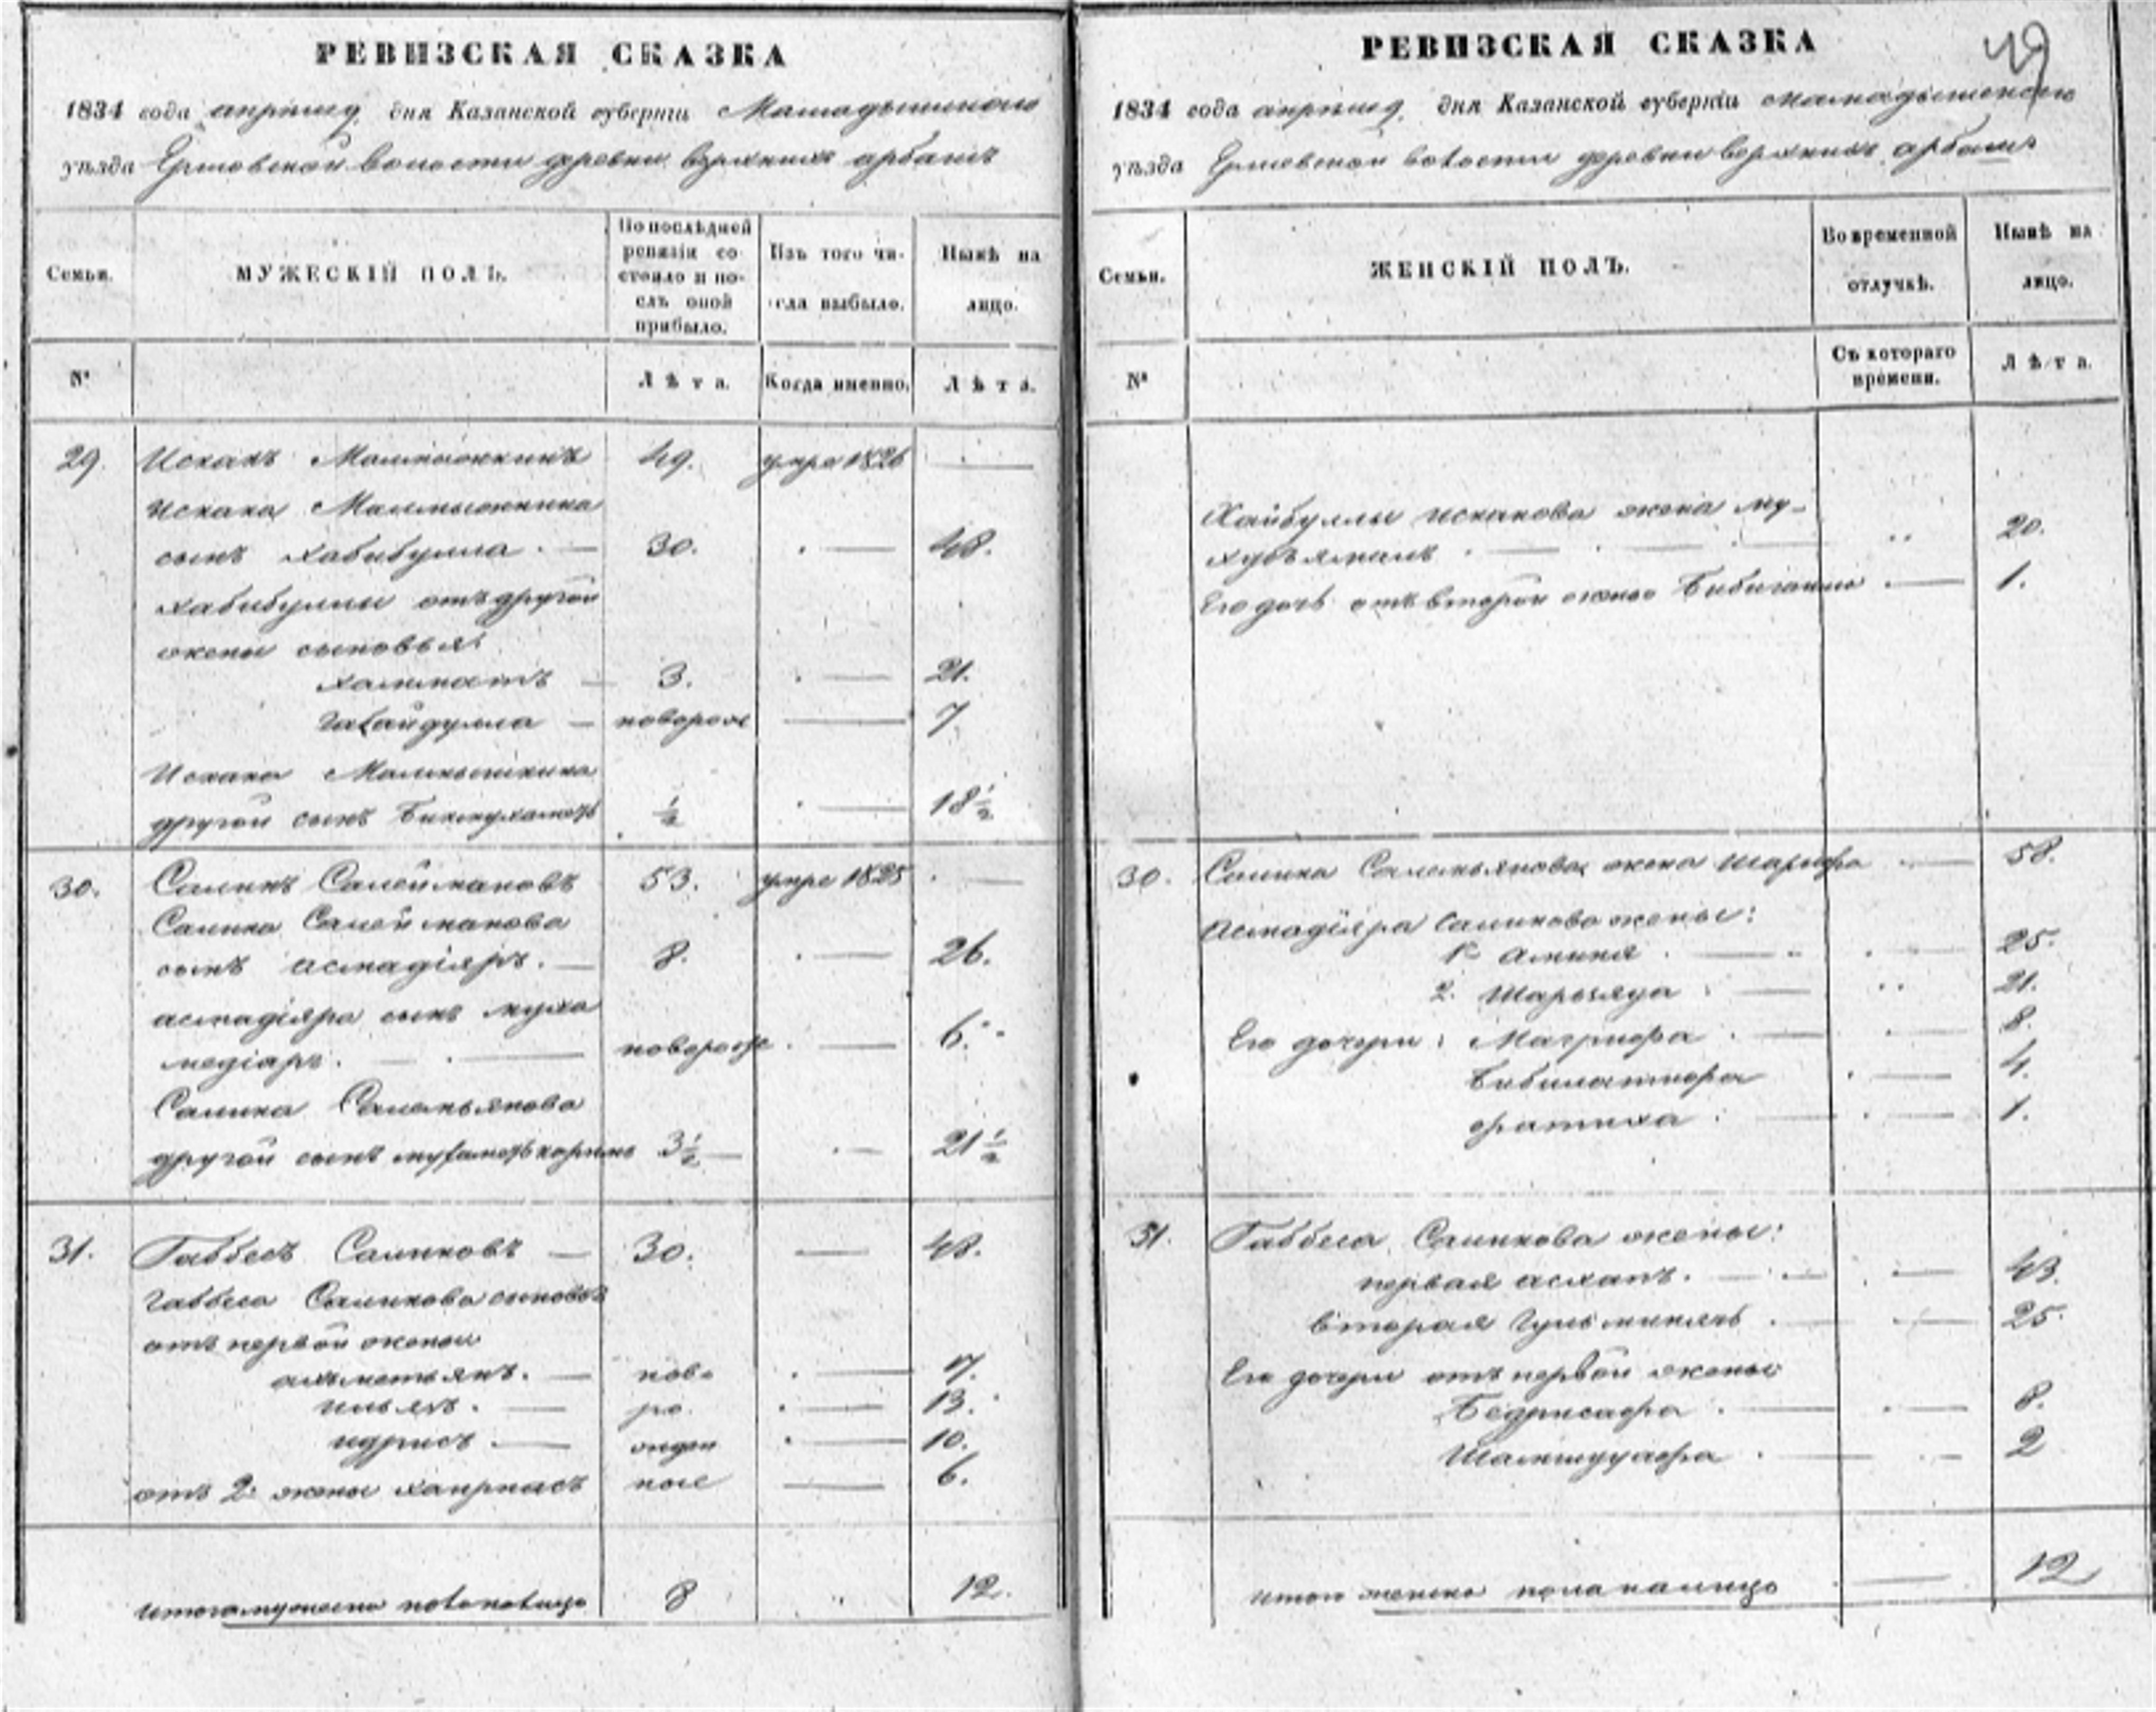 РЕВИЗСКАЯ СКАЗКА
1834 года априля дня Казанской губерніи Мамадышскаго
уѣзда волости деревни верхнихъ арбашъ
Семьи.
МУЖЕСКІЙ ПОЛЪ.
По послѣдней ревизіи состояло и послѣ оной прибыло.
Изъ того числа выбыло.
Нынѣ на лицо.
№
Лѣта.
Когда именно.
Лѣта.
29. Искакъ 49. умре 1826
Искака
сынъ хабибулла. 30. 48.
хабибуллы отъ другой
жены сыновья:
3. 21.
новорож 7
Искака
другой сынъ Бикмухаметъ ½ 18½
30. Салихъ Салеймановъ 53. умре 1825
Салиха Салейманова
сынъ асмадіяръ. 8. 26.
асмадіяра сынъ муха
медіаръ. новорож 6.
Салиха
другой сынъ 3½ 21½
31. Габбесъ Салиховъ 30. 48.
габбеса Салихова сыновья
отъ первой жены
ахметьянъ. ново 17.
ильяъ. ро 13.
идрисъ. жден 10.
отъ 2й жены ные 6.
итого мужеска 8 12.
РЕВИЗСКАЯ СКАЗКА 49
1834 года априля дня Казанской губерніи мамадышскаго
уѣзда волости деревни верхнихъ арбашъ
Семьи.
ЖЕНСКІЙ ПОЛЪ.
Во временной отлучкѣ.
Нынѣ на лицо.
№
Съ котораго времени.
Лѣта.
Хайбуллы искакова жена му-
20.
Его дочь отъ второй жены 1.
30. Салиха жена шарифа 58.
асмадіяра Салихова жены:
1я амина 25.
2. 21.
Его дочери: Магрифа 8.
4.
фатиха 1.
31. Габбеса Салихова жены:
первая асхапъ. 43.
вторая 25.
Его дочери отъ первой жены
Бедрисафа 8.
2
итого женска пола налицо 12